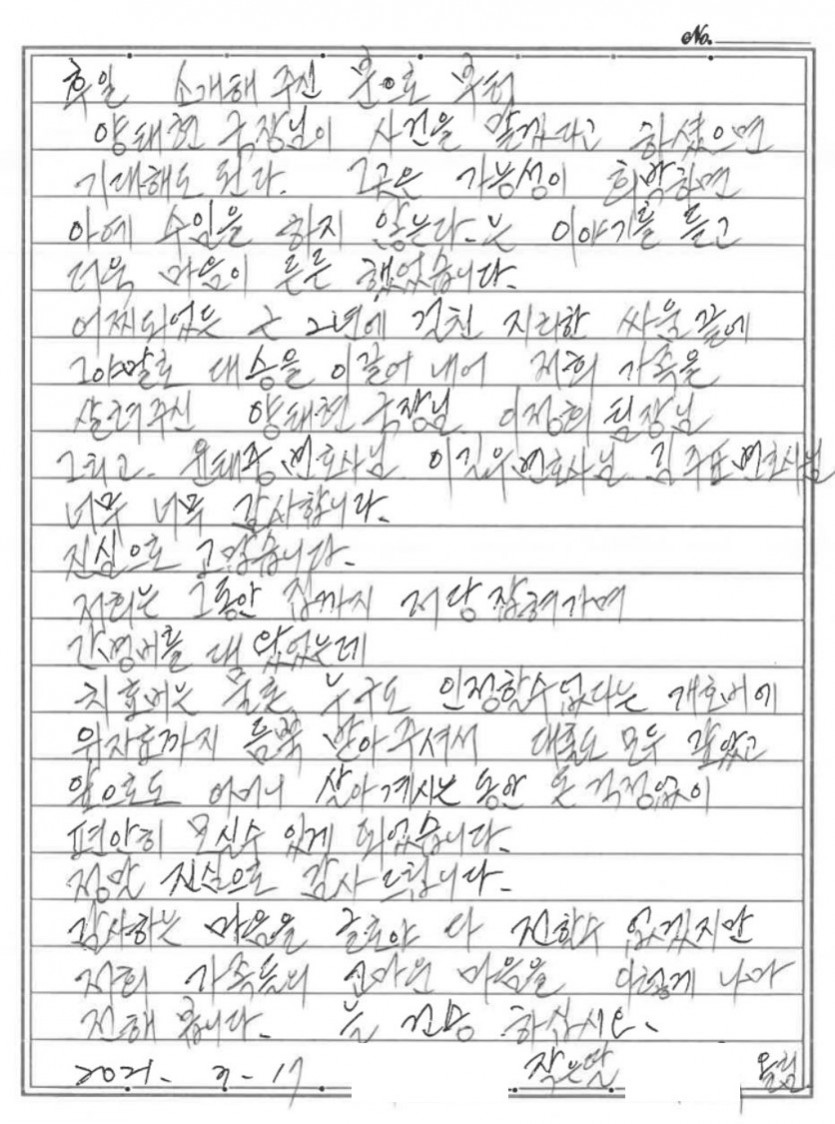 No.
후일 소개해 주신 분으로 부터
양태현 국장님이 사건을 맡겠다고 하셨으면
기대해도 된다. 그곳은 가능성이 희박하면
아예 수임을 하지 않는다-는 이야기를 듣고
더욱 마음이 든든 했었습니다.
어찌되었든 근 2년에 걸친 지리한 싸움 끝에
그야말로 대승을 이끌어 내어 저희 가족을
살려주신 양태현 국장님 이정희 팀장님
그리고 윤태중 변호사님 이길우 변호사님 김주표 변호사님
너무 너무 감사합니다.
진심으로 고맙습니다.
저희는 그동안 집까지 저당 잡혀가며
간병비를 대 왔었는데
치료비는 물론 누구도 인정할수없다는 개호비에
위자료까지 듬뿍 받아 주셔서 대출도 모두 갚았고
앞으로도 어머니 살아계시는 동안 돈 걱정없이
편안히 모실수 있게 되었습니다.
정말 진심으로 감사드립니다.
감사하는 마음을 글로야 다 전할수 없겠지만
저희 가족들의 고마운 마음을 이렇게 나마
전해 봅니다. 늘 건승 하십시요.
2021- -17 작은딸 올림